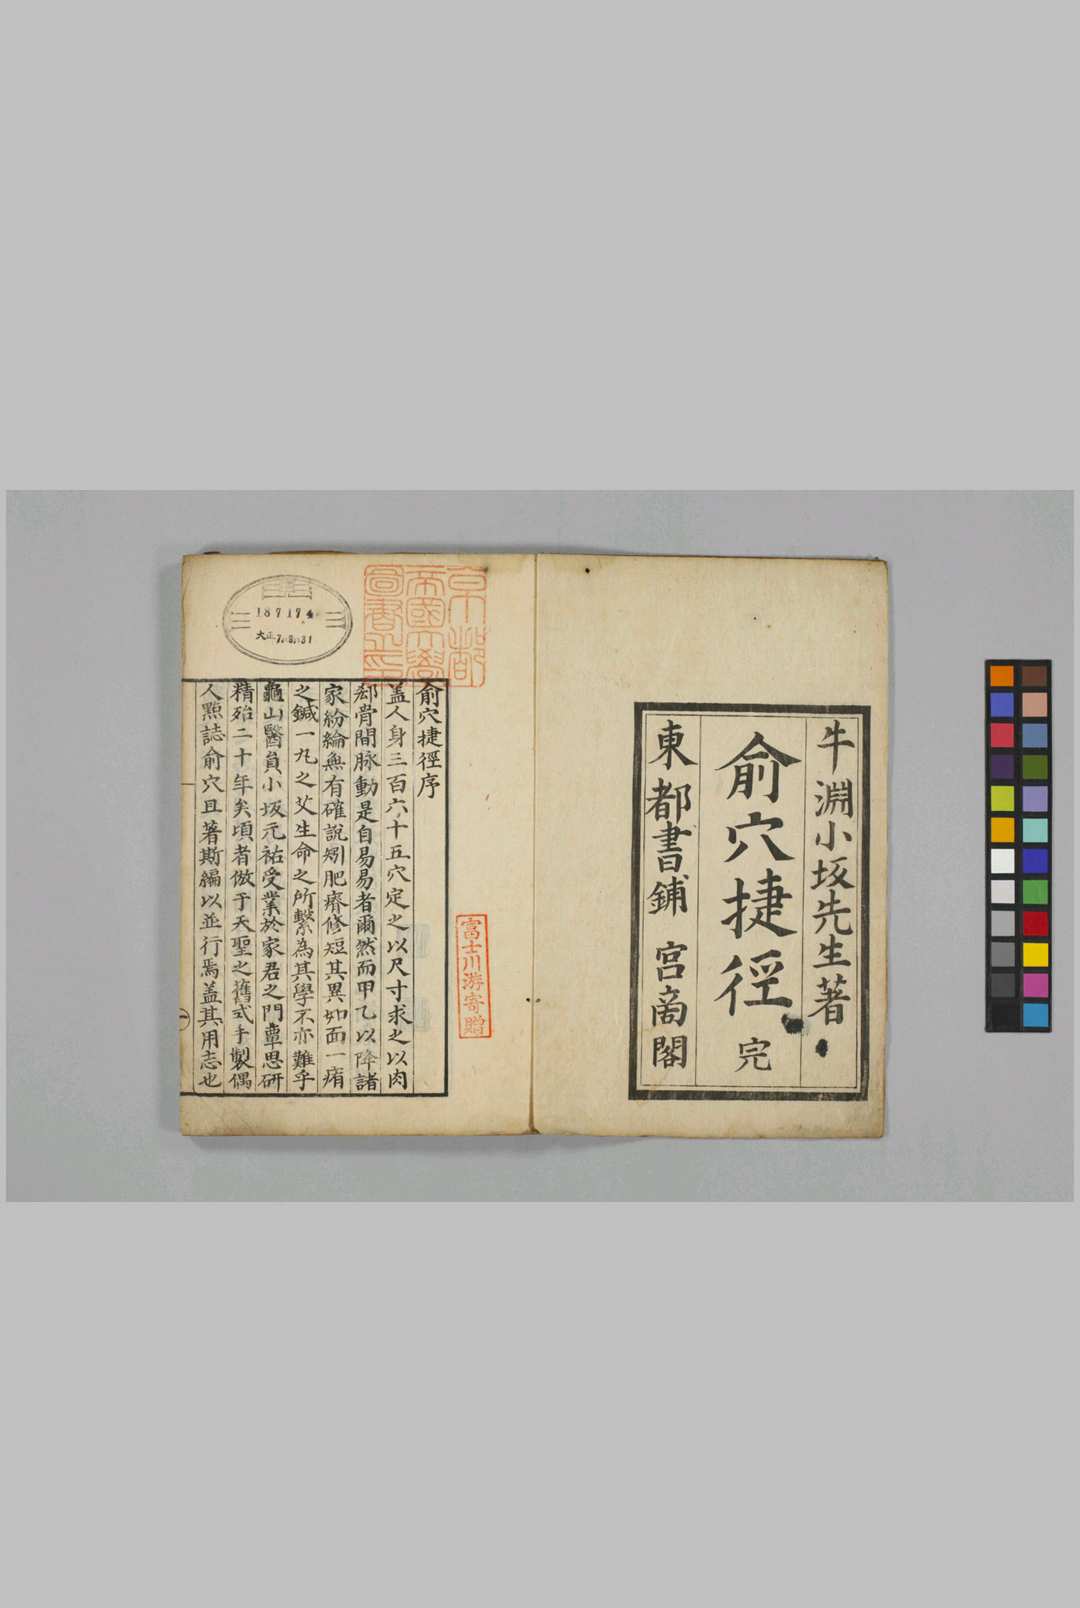 牛淵小坂先生著
俞穴捷徑 完
東都書鋪 宮商閣
京都
帝國大學
圖書之印
187174
大正7.8.31
富士川游寄贈
俞穴捷徑序
盖人身三百六十五穴定之以尺寸求之以肉
郄骨間脉動是自易易者爾然而甲乙以降諸
家紛綸無有確說矧肥瘠修短其異如面一痏
之鍼一九之艾生命之所繫為其學不亦難乎
龜山醫員小坂元祐受業於家君之門覃思研
精殆二十年矣頃者倣于天聖之舊式手製偶
人㸃誌俞穴且著斯編以並行焉盖其用志也
一